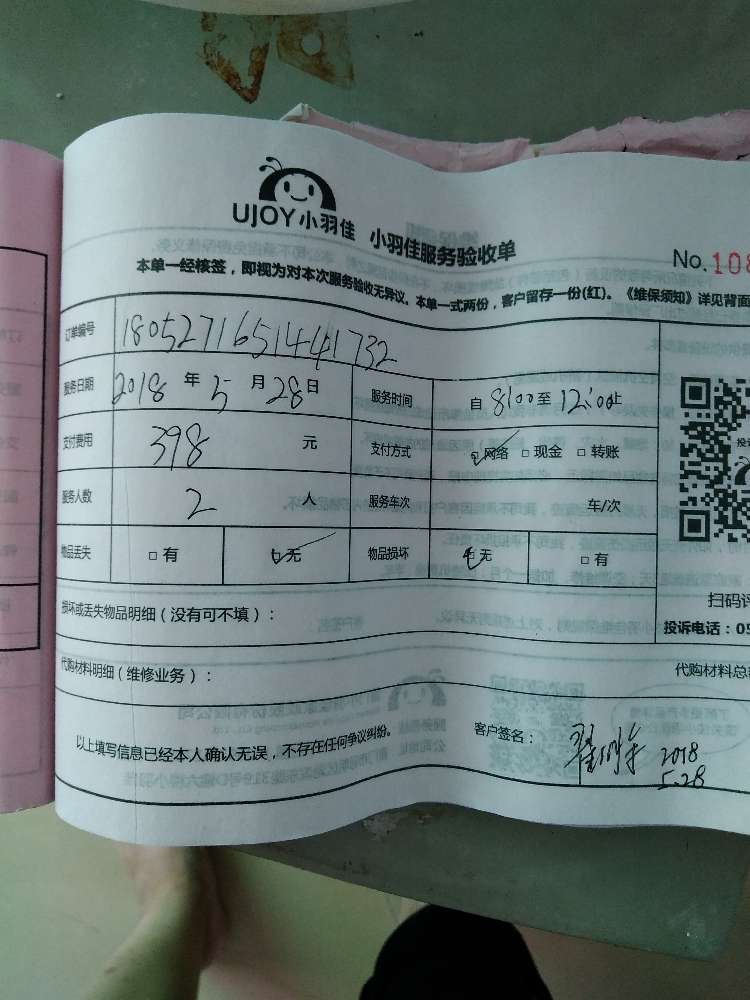 UJOY小羽佳 小羽佳服务验收单
No.108
本单一经核签，即视为对本次服务验收无异议。本单一式两份，客户留存一份(红)。《维保须知》详见背面
订单编号 1805271651441732
服务日期 2018 年 5 月 28 日 服务时间 自 8:00 至 12:00 止
支付费用 398 元 支付方式 ☑网络 □现金 □转账
服务人数 2 人 服务车次 车/次
物品丢失 □有 ☑无 物品损坏 ☑无 □有
扫码评
损坏或丢失物品明细(没有可不填)：
投诉电话：05
代购材料明细(维修业务)： 代购材料总
以上填写信息已经本人确认无误，不存在任何争议纠纷。 客户签名： 2018
5.28